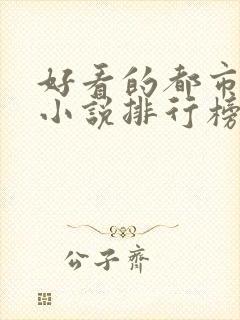 好看的都市
小说排行榜
公子齊